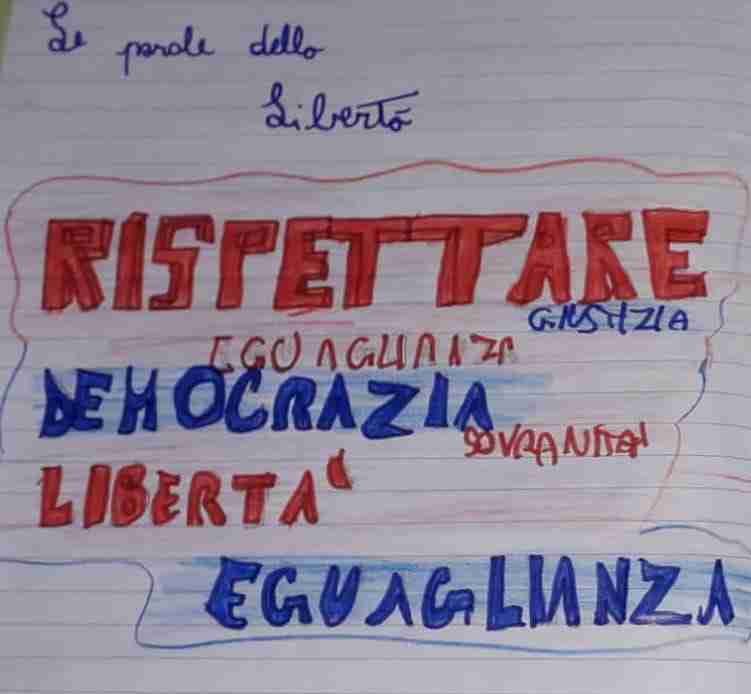 Le parole dello
Libertà
RISPETTARE
GIUSTIZIA
EGUAGLIANZA
DEMOCRAZIA
SOVRANITà
LIBERTA'
EGUAGLIANZA